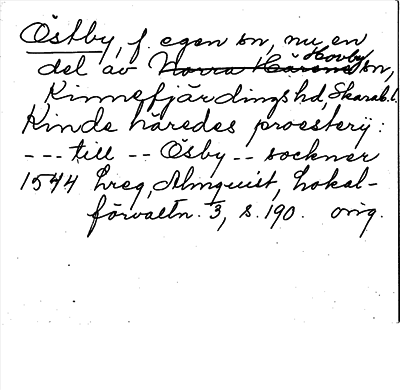 Östby, f. egen sn, nu en
del av Norra Härene Hovby sn,
Kinnefjärdings hd, Skarab.l.
Kinde häredes proesterij:
--- till -- Ösby -- sockner
1544 hreg, Almquist, Lokal-
förvaltn. 3, s. 190. orig.